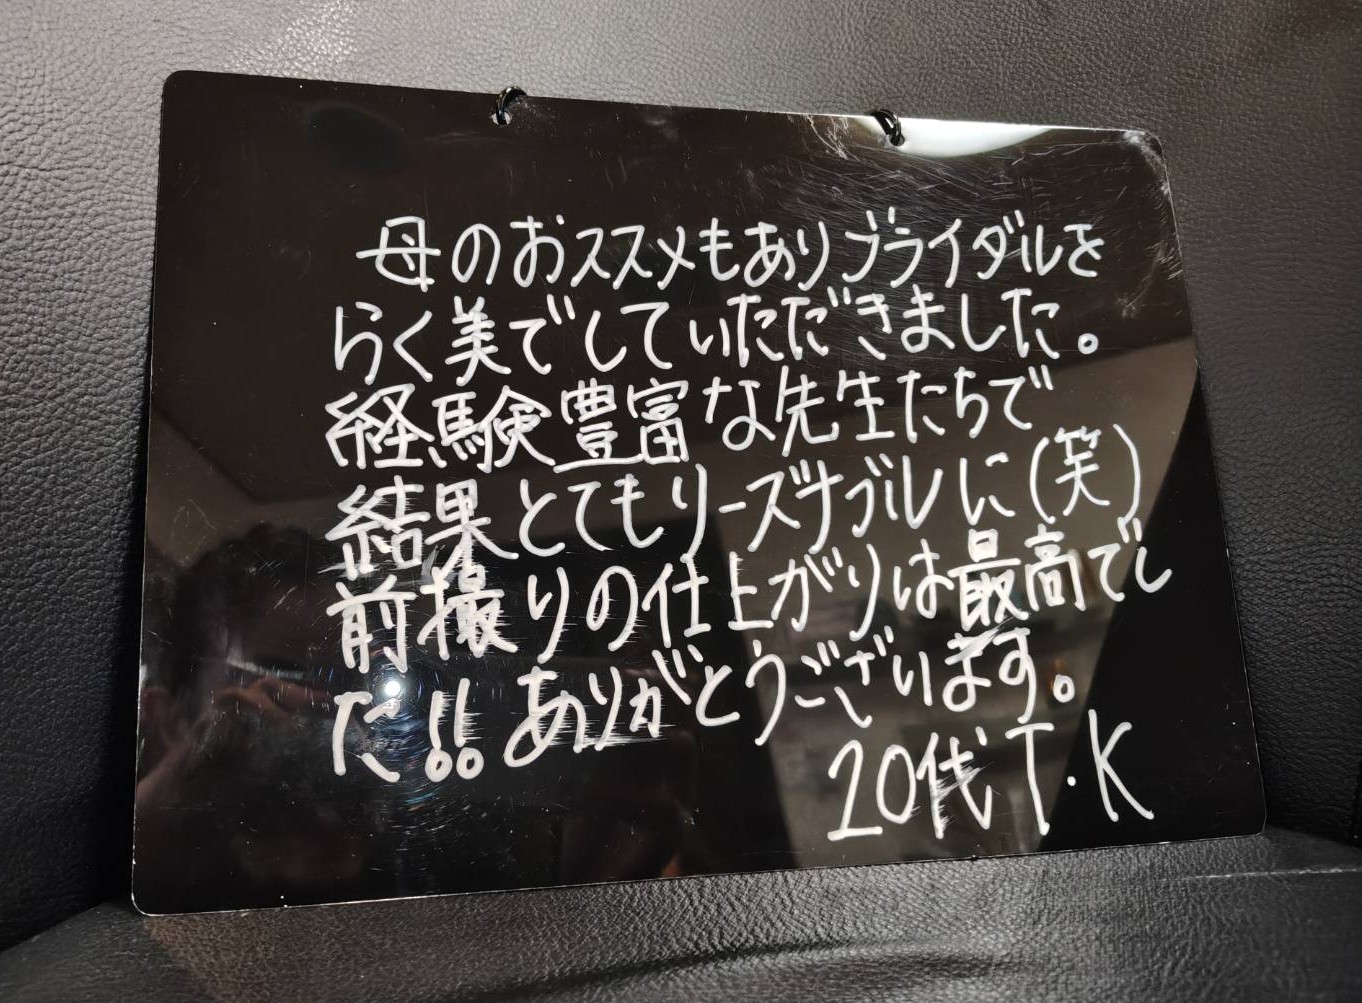 母のおススメもありブライダルを
らく美でしていただきました。
経験豊富な先生たちで
結果とてもリーズナブルに(笑)
前撮りの仕上がりは最高でし
た!!ありがとうございます。
20代 T・K